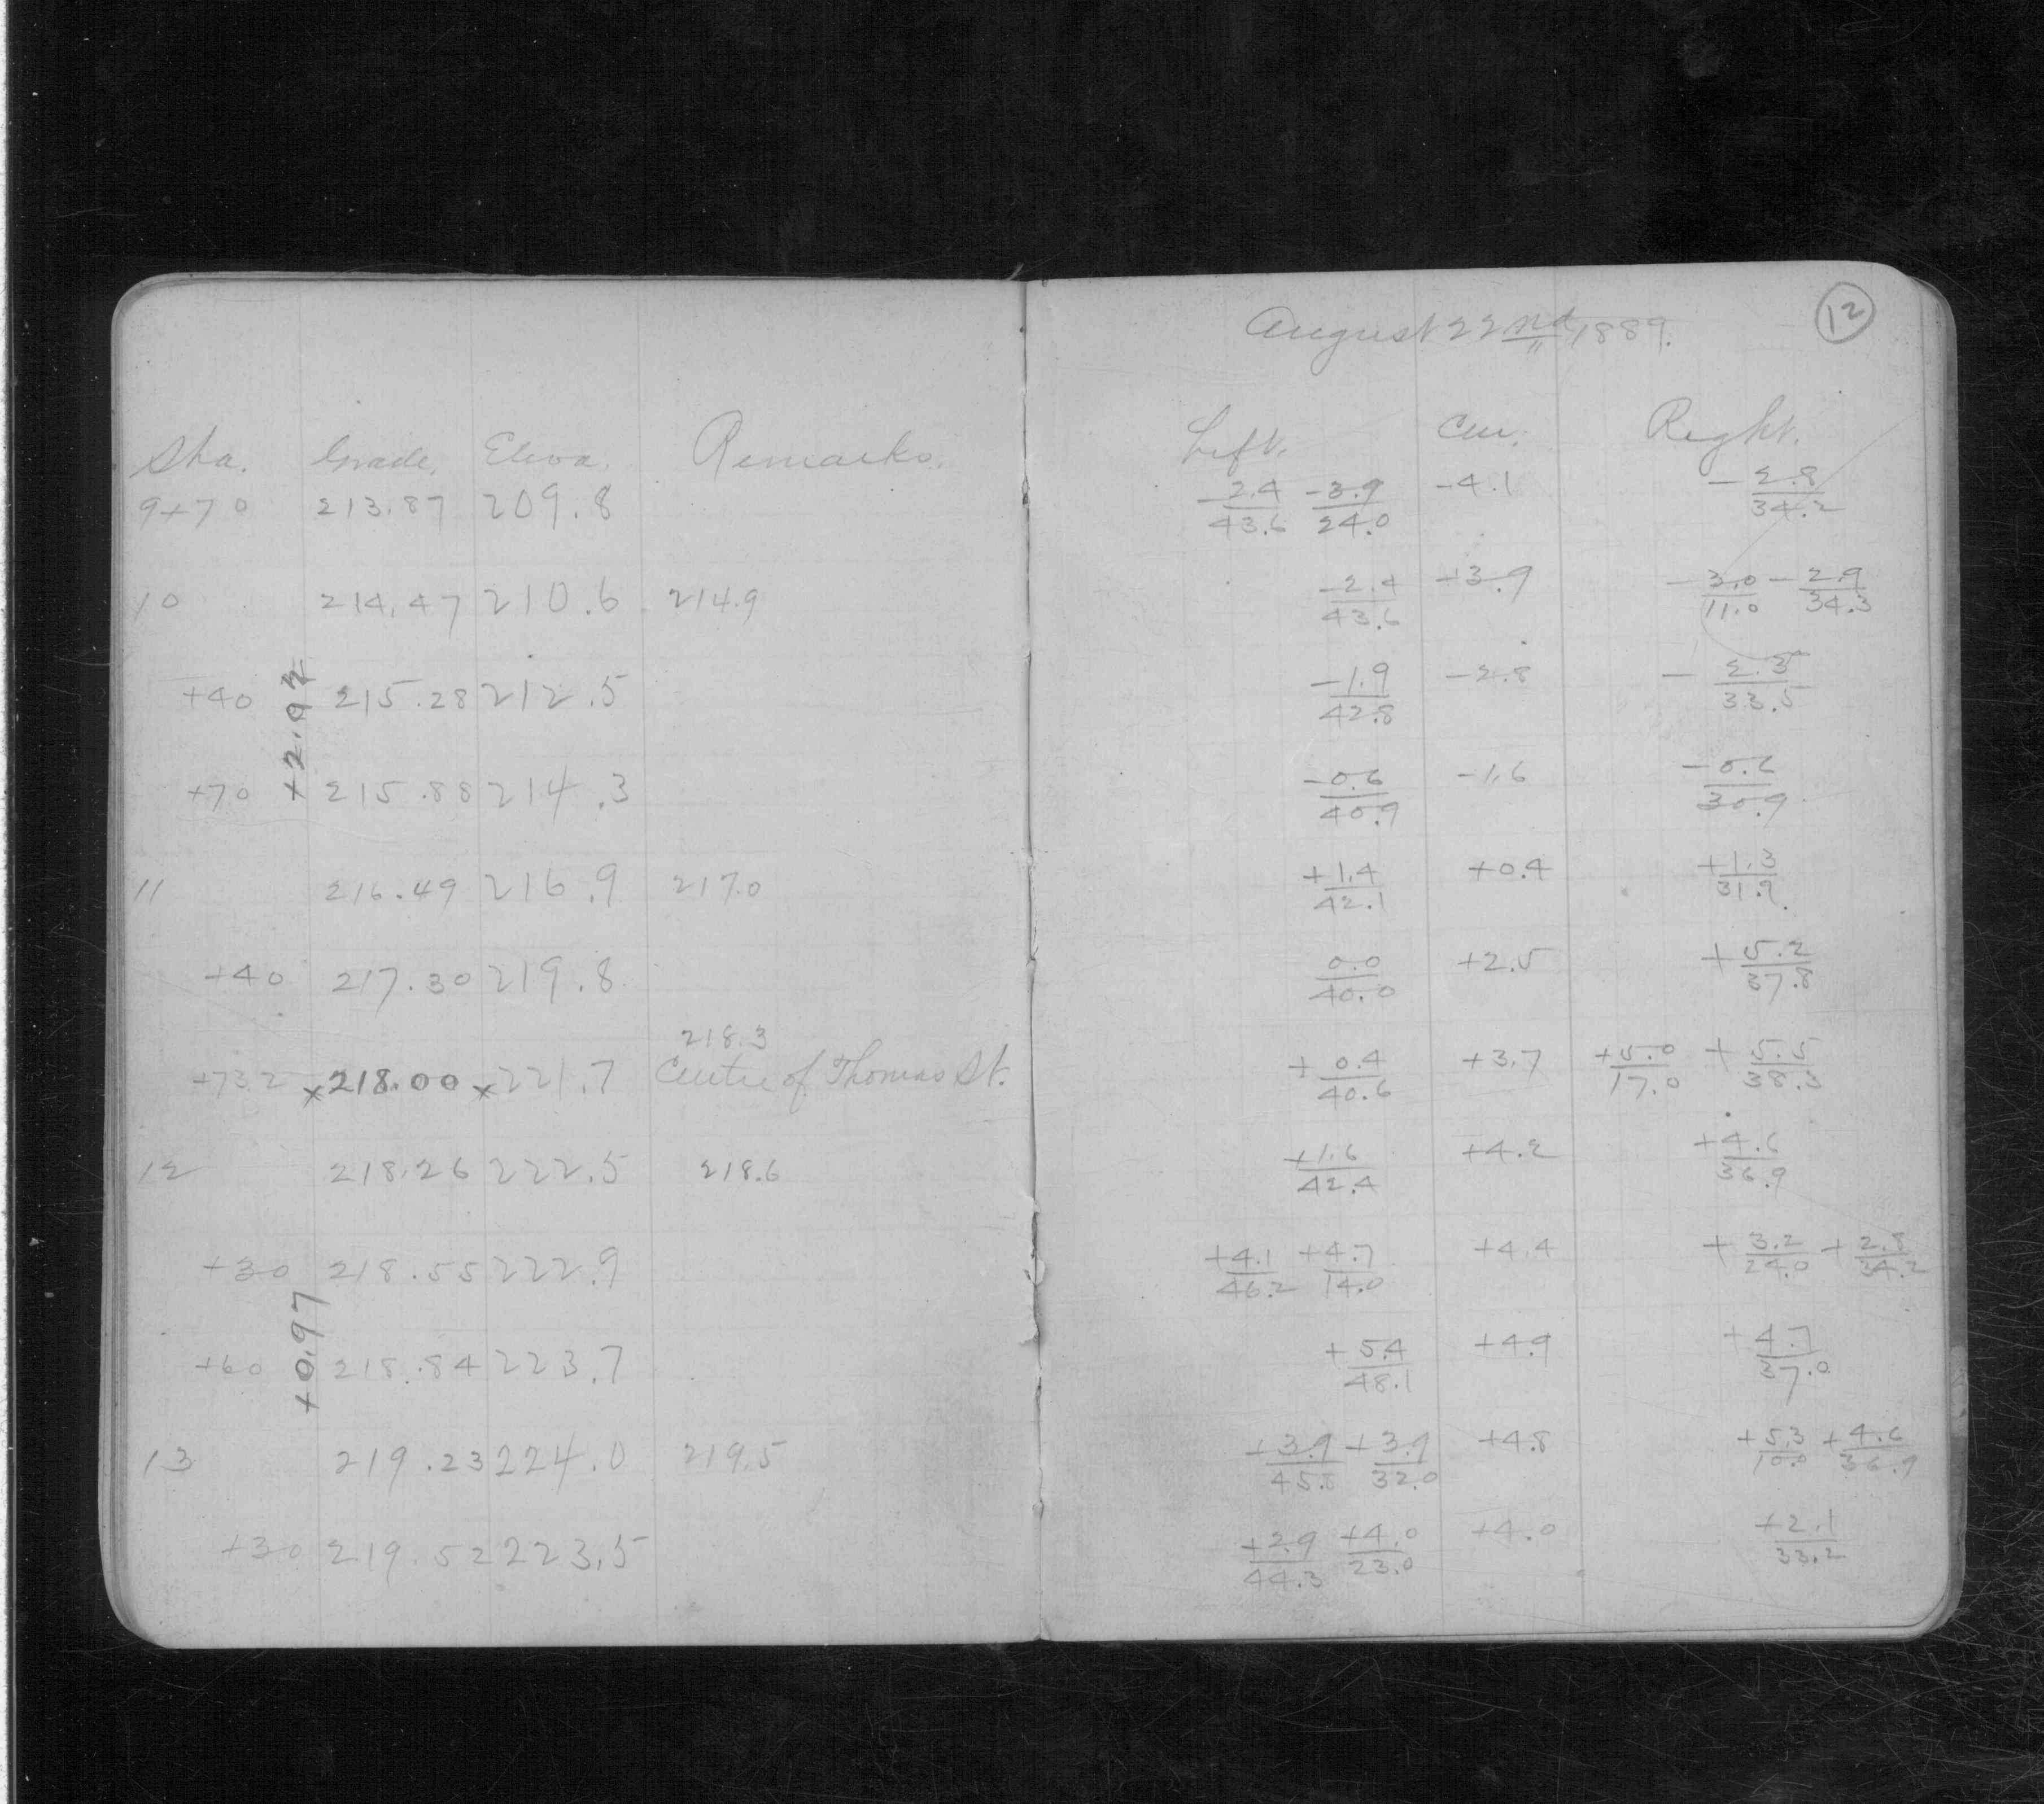 12
August 22nd, 1889.
Sta. Grade. Eleva. Remarks. Left. Cen. Right.
9+70 213.87 209.8 -2.4/43.6 -3.9/24.0 -4.1 -2.8/34.2
10 214.47 210.6 214.9 -2.4/43.6 +3.9 -3.0/11.0 -2.9/34.3
+40 215.28 212.5 -1.9/42.8 -2.8 -2.3/33.5
+70 215.88 214.3 -0.6/40.9 -1.6 -0.6/30.9
11 216.49 216.9 217.0 +1.4/42.1 +0.4 +1.3/31.9
+40 217.30 219.8 0.0/40.0 +2.5 +5.2/37.8
218.3
+73.2 x218.00 x221.7 Centre of Thomas St. +0.4/40.6 +3.7 +5.0/17.0 +5.5/38.3
12 218.26 222.5 218.6 +1.6/42.4 +4.2 +4.6/36.9
+30 218.55 222.9 +4.1/46.2 +4.7/14.0 +4.4 +3.2/24.0 +2.8/34.2
+60 218.84 223.7 +5.4/48.1 +4.9 +4.7/37.0
13 219.23 224.0 219.5 +3.9/45.8 +3.9/32.0 +4.8 +5.3/10.0 +4.6/36.9
+30 219.52 223.5 +2.9/44.3 +4.0/23.0 +4.0 +2.1/33.2
+0.97